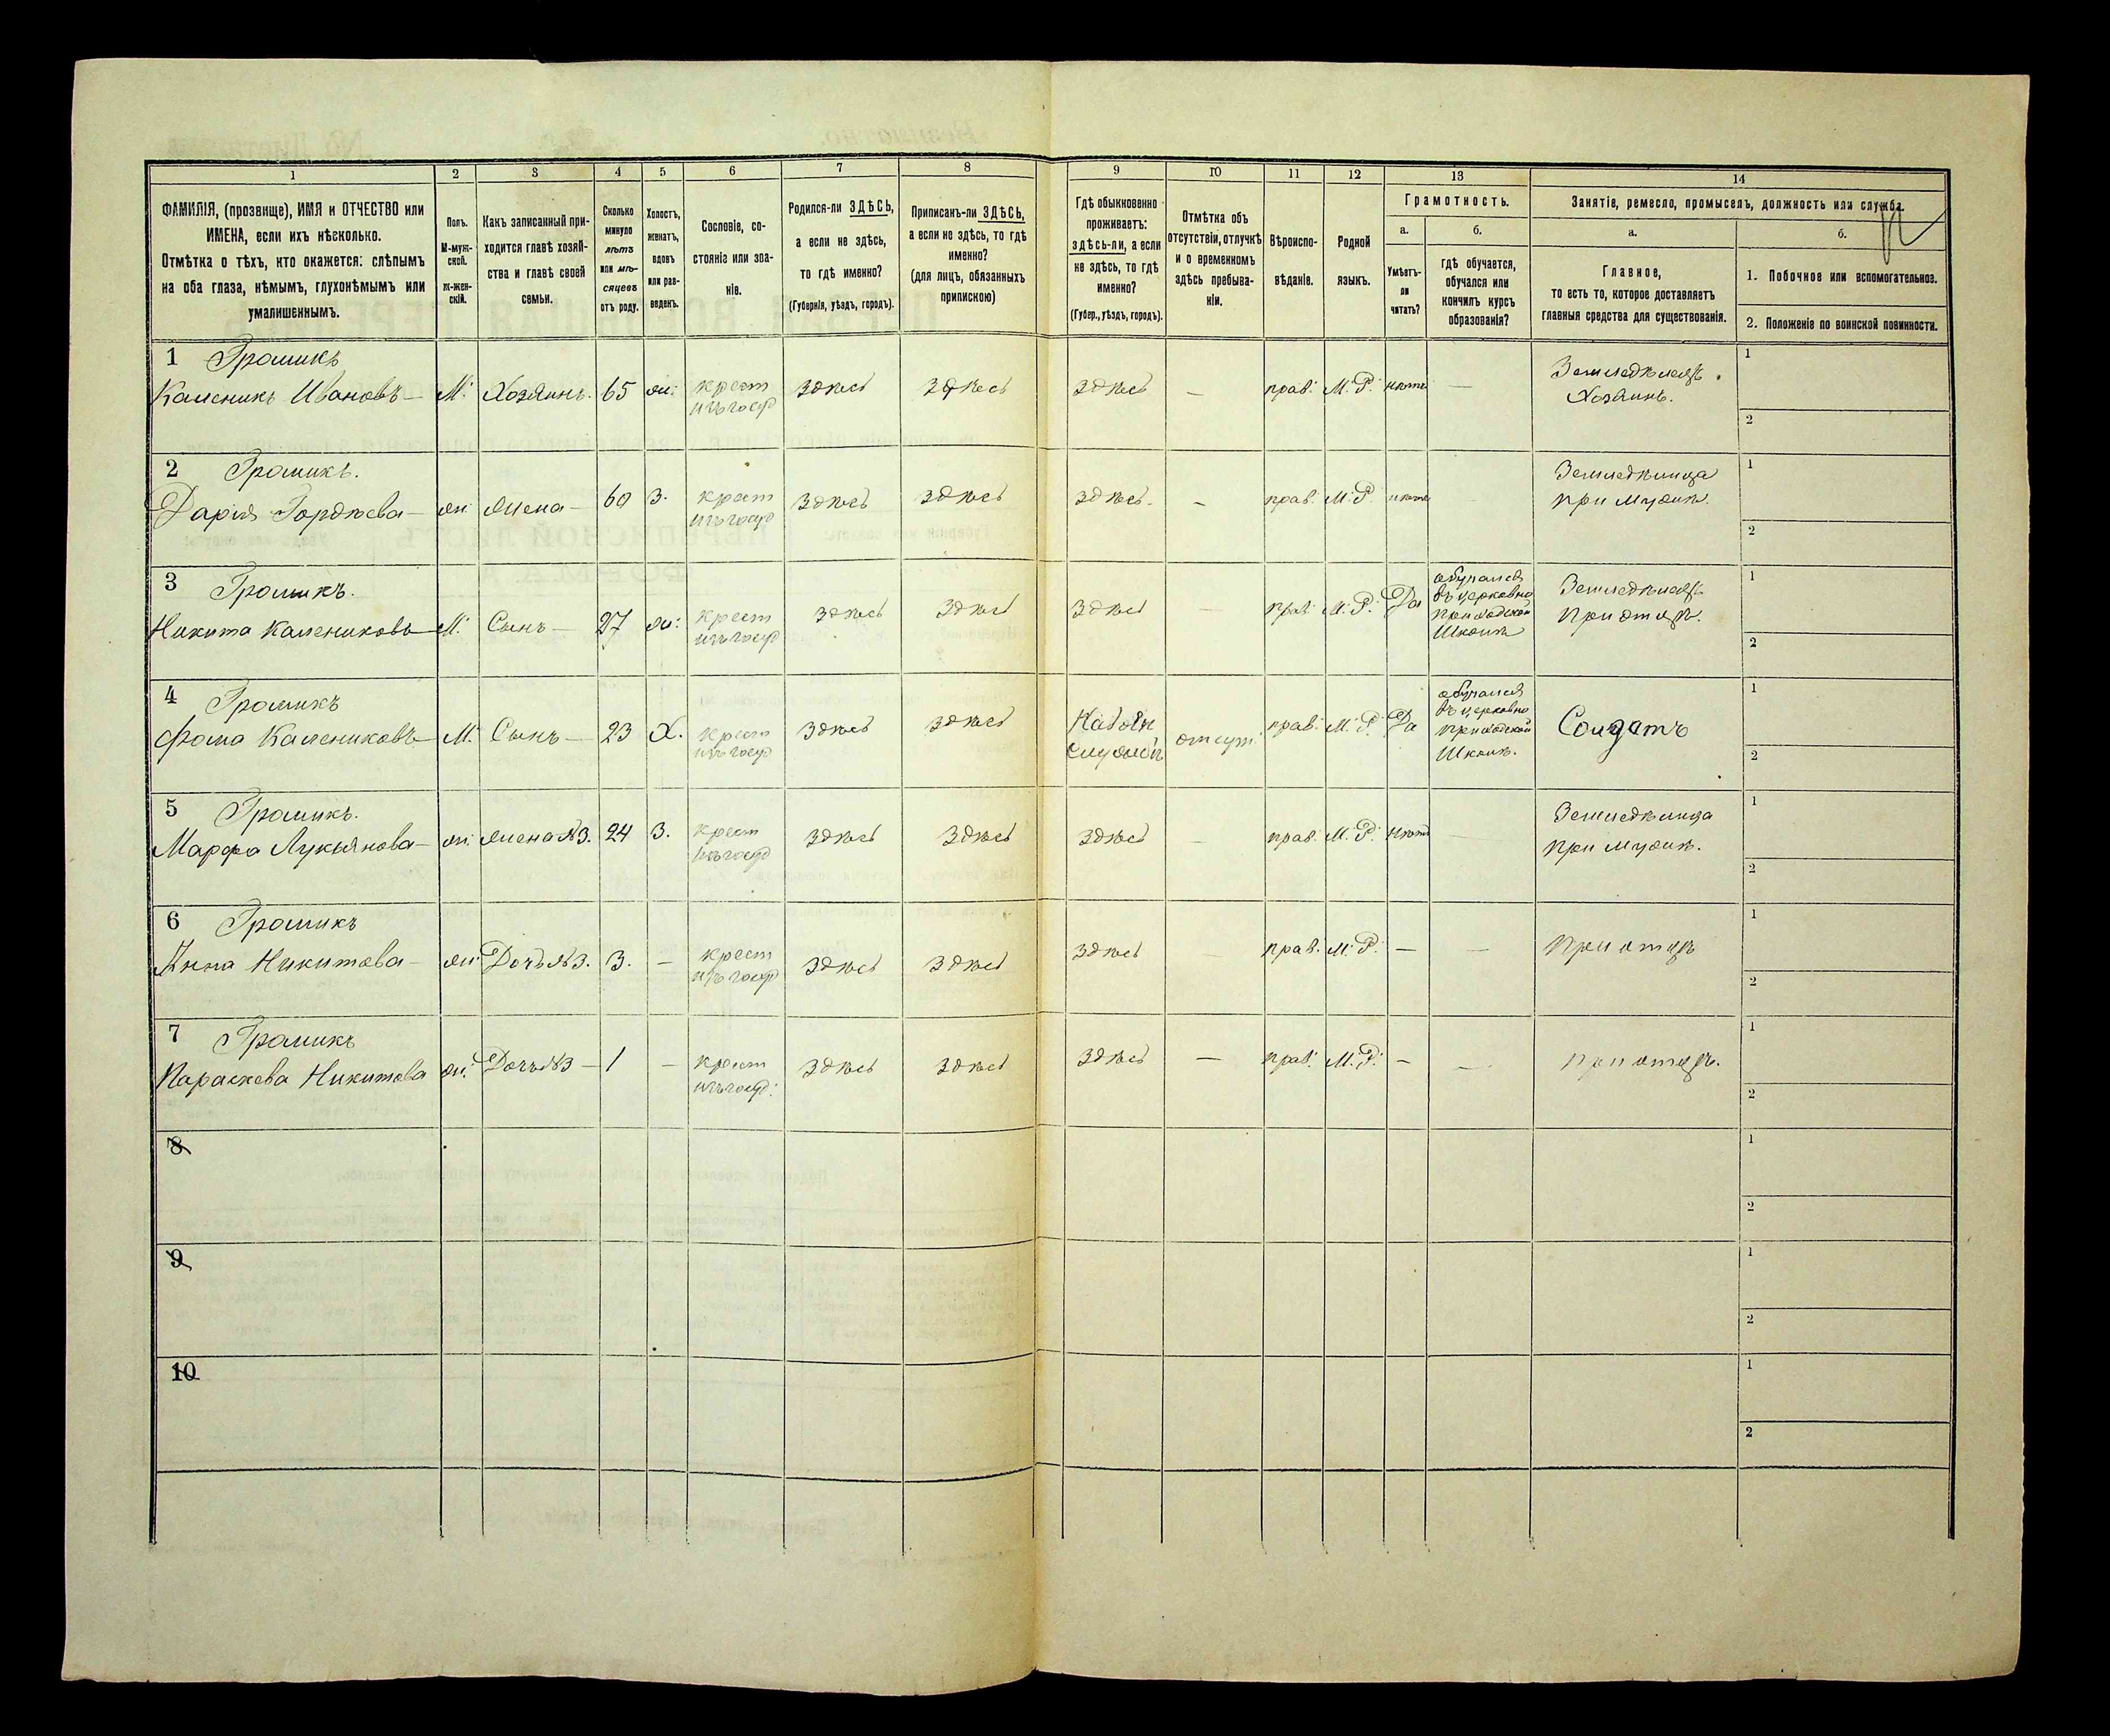 1 2 3 4 5 6 7 8 9 10 11 12 13 14
ФАМИЛІЯ, (прозвище), ИМЯ и ОТЧЕСТВО или
ИМЕНА, если ихъ нѣсколько.
Отмѣтка о тѣхъ, кто окажется: слѣпымъ
на оба глаза, нѣмымъ, глухонѣмымъ или
умалишеннымъ.
Полъ.
М-муж-
ской.
ж-жен-
скій.
Какъ записанный при-
ходится главѣ хозяй-
ства и главѣ своей
семьи.
Сколько
минуло
лѣтъ
или мѣ-
сяцевъ
отъ роду.
Холостъ,
женатъ,
вдовъ
или раз-
веденъ.
Сословіе, со-
стояніе или зва-
ніе.
Родился-ли ЗДѢСЬ,
а если не здѣсь,
то гдѣ именно?
(Губернія, уѣздъ, городъ).
Приписанъ-ли ЗДѢСЬ,
а если не здѣсь, то гдѣ
именно?
(для лицъ, обязанныхъ
припискою)
Гдѣ обыкновенно
проживаетъ:
здѣсь-ли, а если
не здѣсь, то гдѣ
именно?
(Губер., уѣздъ, городъ).
Отмѣтка объ
отсутствіи, отлучкѣ
и о временномъ
здѣсь пребыва-
ніи.
Вѣроиспо-
вѣданіе.
Родной
языкъ.
Грамотность.
а.
Умѣетъ-
ли
читать?
б.
Гдѣ обучается,
обучался или
кончилъ курсъ
образованія?
Занятіе, ремесло, промыселъ, должность или служба.
а.
Главное,
то есть то, которое доставляетъ
главныя средства для существованія.
б.
1. Побочное или вспомогательное.
2. Положеніе по воинской повинности.
1 Громикъ
Каленикъ Ивановъ — М. Хозяинъ. 65 ж: крест изъ госуд здѣсь здѣсь здѣсь — прав. М.Р. нѣтъ — Земледѣлецъ. Хозяинъ.
1
2
2 Громикъ.
Дарія Гордѣева — ж. жена — 60 З. крест изъ госуд здѣсь здѣсь здѣсь. — прав. М.Р. нѣтъ Земледѣлица при мужѣ.
1
2
3 Громикъ.
Никита Калениковъ — М. Сынъ — 27 ж: крест изъ госуд здѣсь здѣсь здѣсь — прав. М.Р. Да обучался въ церковно приходской школѣ Земледѣлецъ при отцѣ.
1
2
4 Громикъ
Фома Калениковъ — М. Сынъ — 23 Х. крест изъ госуд здѣсь здѣсь На воен службѣ отсут. прав. М.Р. Да обучался въ церковно приходской школѣ. Солдатъ
1
2
5 Громикъ.
Марфа Лукьянова — ж. жена №3. 24 З. крест изъ госуд здѣсь здѣсь здѣсь — прав. М.Р. нѣтъ — Земледѣлица при мужѣ.
1
2
6 Громикъ
Анна Никитова — ж. Дочь №3. 3. — крест изъ госуд здѣсь здѣсь здѣсь — прав. М.Р. — — при отцѣ
1
2
7 Громикъ
Параскева Никитова ж. Дочь №3 — 1 — крест изъ госуд. здѣсь здѣсь здѣсь — прав. М.Р. — — при отцѣ.
1
2
8
1
2
9
1
2
10
1
2